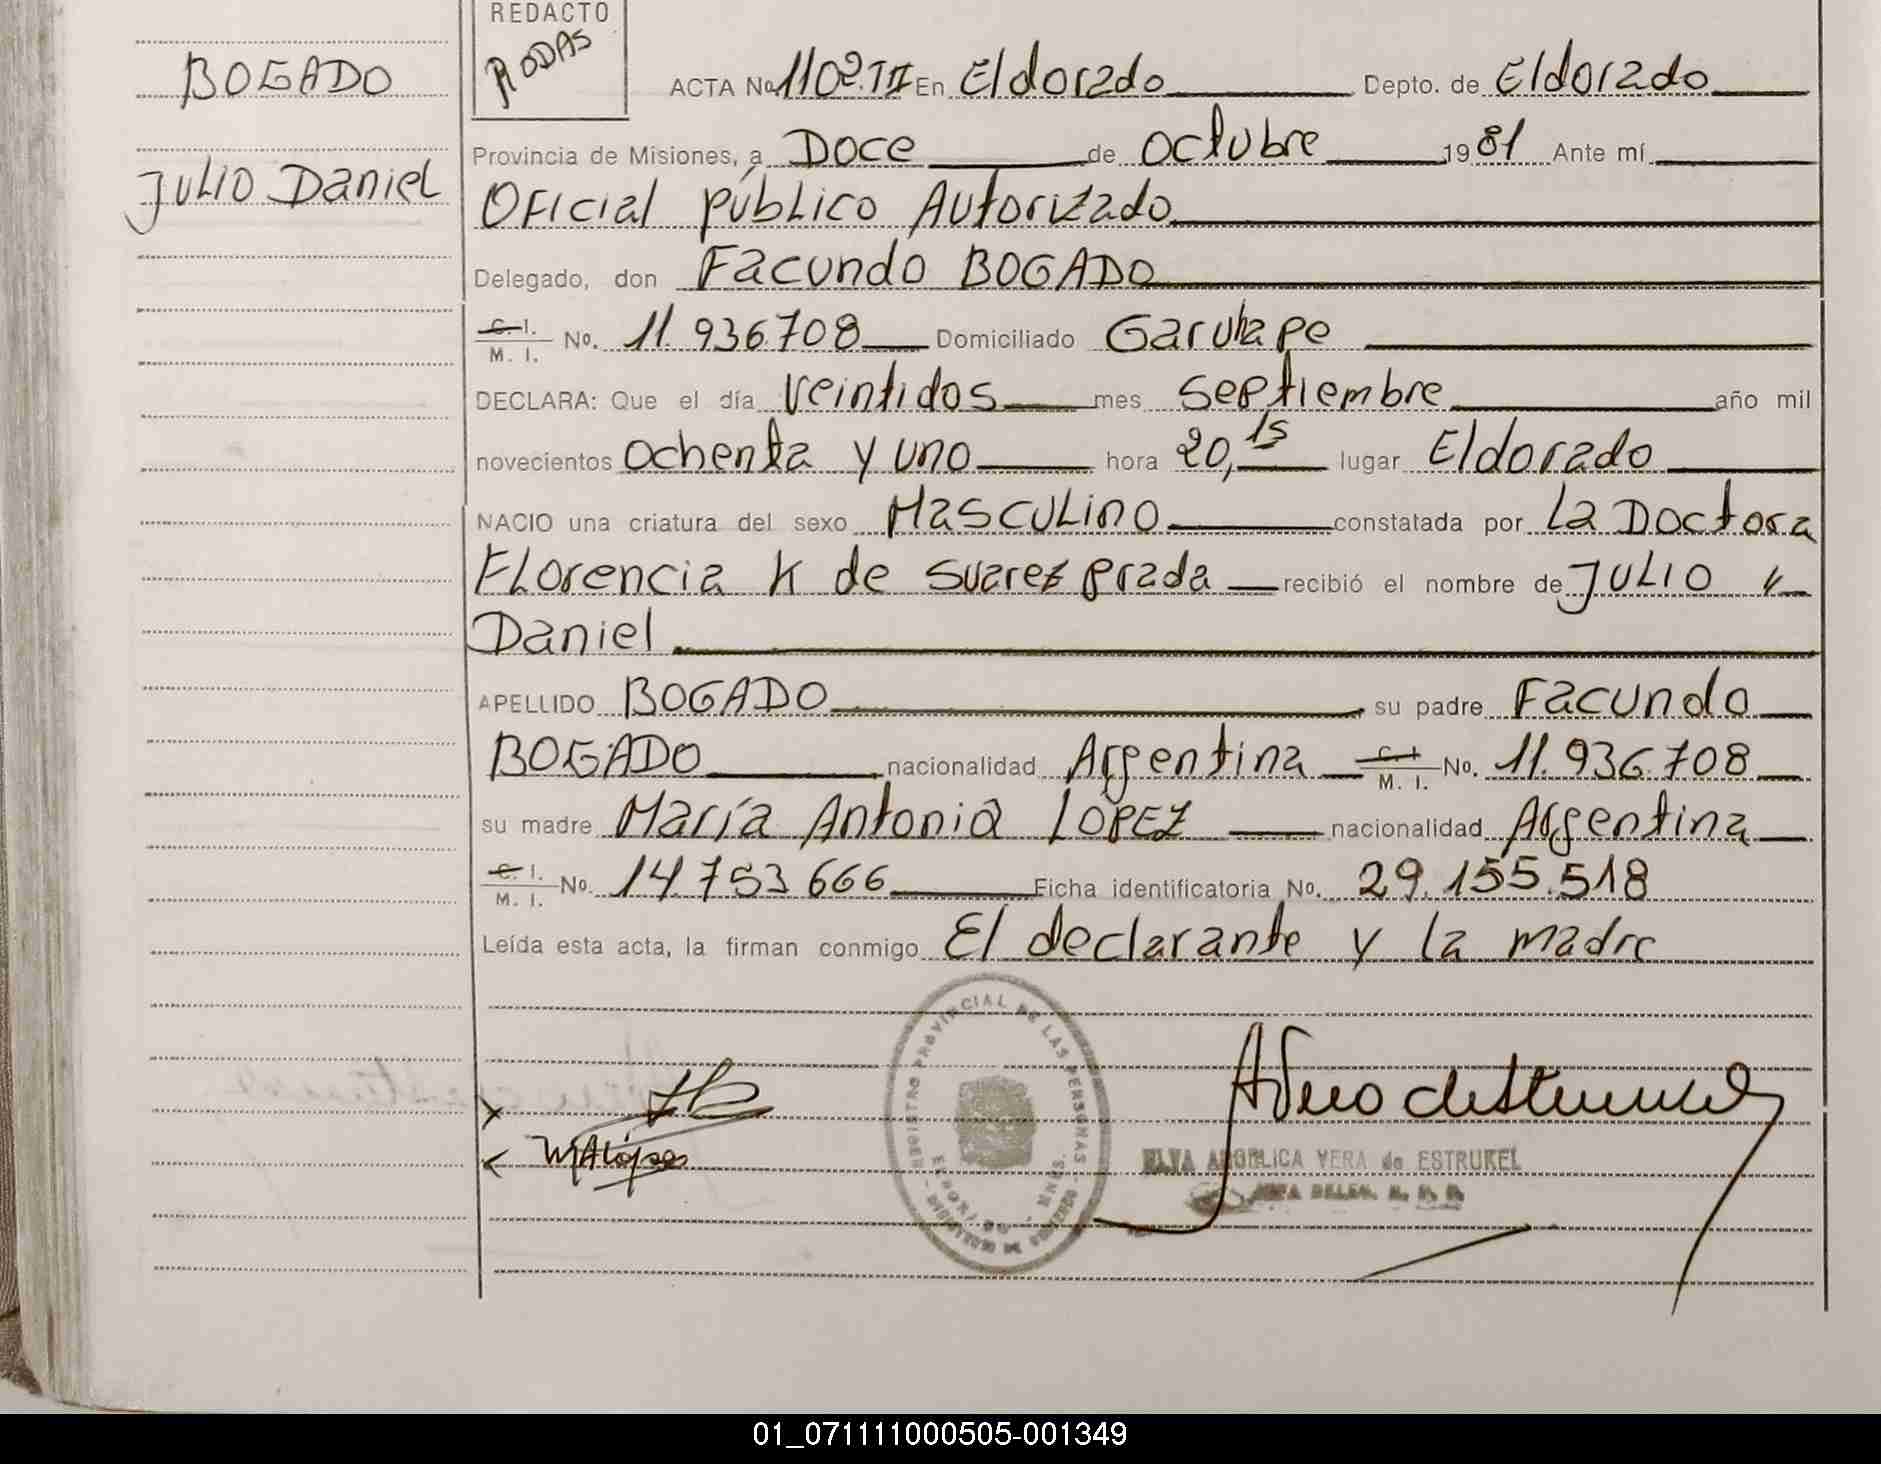 REDACTO
RODAS
BOGADO
JULIO Daniel
ACTA No. 1102.TII En Eldorado Depto. de Eldorado
Provincia de Misiones, a Doce de octubre 1981 Ante mí
Oficial público Autorizado
Delegado, don Facundo BOGADO
C. I. / M. I. No. 11.936.708 Domiciliado Garuhape
DECLARA: Que el día veintidos mes septiembre año mil
novecientos ochenta y uno hora 20,15 lugar Eldorado
NACIO una criatura del sexo Masculino constatada por La Doctora
Florencia K de Suarez prada recibió el nombre de JULIO
Daniel
APELLIDO BOGADO su padre Facundo
BOGADO nacionalidad Argentina C. I. / M. I. No. 11.936.708
su madre María Antonia LOPEZ nacionalidad Argentina
C. I. / M. I. No. 14.753.666 Ficha identificatoria No. 29.155.518
Leída esta acta, la firman conmigo El declarante y la madre
REGISTRO PROVINCIAL DE LAS PERSONAS
ELDORADO - MNES.
MALópez
ELVA ANGELICA VERA de ESTRUKEL
JEFA DELEG. R. P. P.
01_071111000505-001349